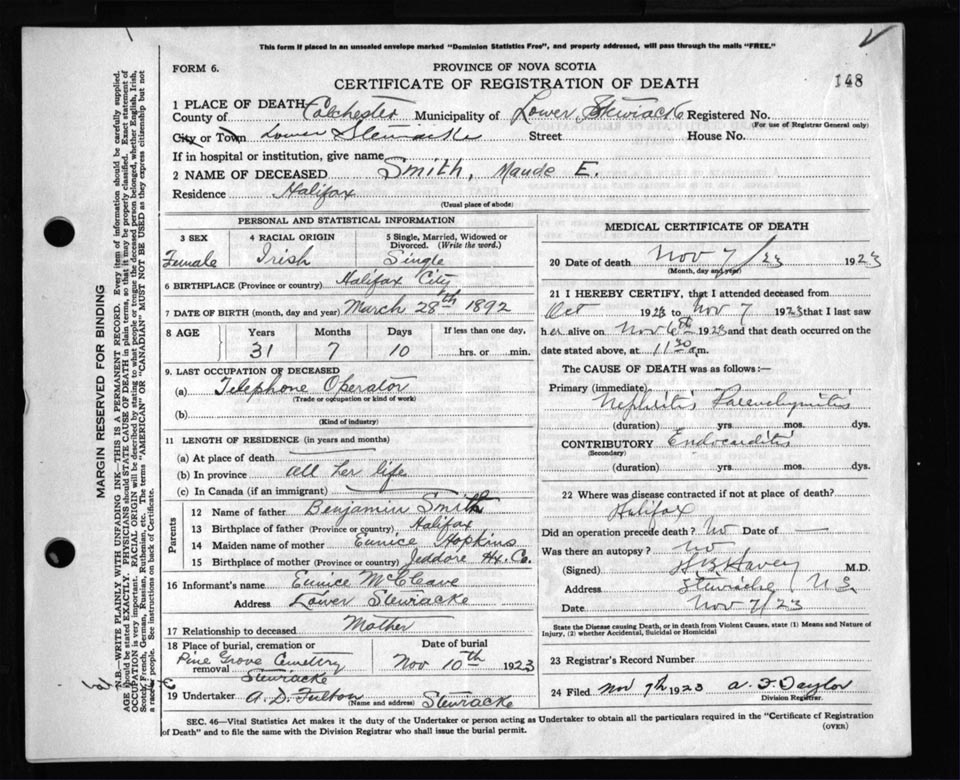 This form if placed in an unsealed envelope marked "Dominion Statistics Free", and properly addressed, will pass through the mails "FREE."
FORM 6.
PROVINCE OF NOVA SCOTIA
CERTIFICATE OF REGISTRATION OF DEATH
148
1 PLACE OF DEATH
County of Colchester Municipality of Lower Stewiacke Registered No.
(For use of Registrar General only)
City or Town Lower Stewiacke Street House No.
If in hospital or institution, give name
2 NAME OF DECEASED Smith, Maude E.
Residence Halifax
(Usual place of abode)
PERSONAL AND STATISTICAL INFORMATION
3 SEX 4 RACIAL ORIGIN 5 Single, Married, Widowed or Divorced. (Write the word.)
Female Irish Single
6 BIRTHPLACE (Province or country) Halifax City
7 DATE OF BIRTH (month, day and year) March 28th 1892
8 AGE Years Months Days If less than one day,
31 7 10 hrs. or min.
9. LAST OCCUPATION OF DECEASED
(a) Telephone Operator
(Trade or occupation or kind of work)
(b)
(Kind of industry)
11 LENGTH OF RESIDENCE (in years and months)
(a) At place of death
(b) In province all her life
(c) In Canada (if an immigrant)
Parents
12 Name of father Benjamin Smith
13 Birthplace of father (Province or country) Halifax
14 Maiden name of mother Eunice Hopkins
15 Birthplace of mother (Province or country) Jeddore Hx. Co.
16 Informant's name Eunice McCleave
Address Lower Stewiacke
17 Relationship to deceased Mother
18 Place of burial, cremation or removal Date of burial
Pine Grove Cemetery Nov 10th 1923
Stewiacke
19 Undertaker A. D. Fulton Stewiacke
(Name and address)
MEDICAL CERTIFICATE OF DEATH
20 Date of death Nov 7/23 1923
(Month, day and year)
21 I HEREBY CERTIFY, that I attended deceased from
Oct 1923 to Nov 7 1923 that I last saw
her alive on Nov 6th 1923 and that death occurred on the
date stated above, at 11 30 a.m.
The CAUSE OF DEATH was as follows:—
Primary (immediate)
Nephritis Parenchymitis
(duration) yrs. mos. dys.
CONTRIBUTORY Endocarditis
(Secondary)
(duration) yrs mos. dys.
22 Where was disease contracted if not at place of death?
Halifax
Did an operation precede death? No Date of —
Was there an autopsy? No
(Signed) M.D.
Address Stewiacke, N S
Date Nov 7/23
State the Disease causing Death, or in death from Violent Causes, state (1) Means and Nature of Injury, (2) whether Accidental, Suicidal or Homicidal
23 Registrar's Record Number
24 Filed Nov 7th 1923 Taylor
Division Registrar.
SEC. 46—Vital Statistics Act makes it the duty of the Undertaker or person acting as Undertaker to obtain all the particulars required in the "Certificate of Registration
of Death" and to file the same with the Division Registrar who shall issue the burial permit.
(OVER)
MARGIN RESERVED FOR BINDING
N.B.—WRITE PLAINLY WITH UNFADING INK—THIS IS A PERMANENT RECORD. Every item of information should be carefully supplied.
AGE should be stated EXACTLY. PHYSICIANS should STATE CAUSE OF DEATH in plain terms, so that it may be properly classified. Exact statement of
OCCUPATION is very important. RACIAL ORIGIN will be described by stating to what people or tongue the deceased person belonged, whether English, Irish,
Scotch, French, German, Russian, Ruthenian, etc. The terms "AMERICAN" or "CANADIAN" MUST NOT BE USED as they express citizenship but not
a race or people. See instructions on back of Certificate.